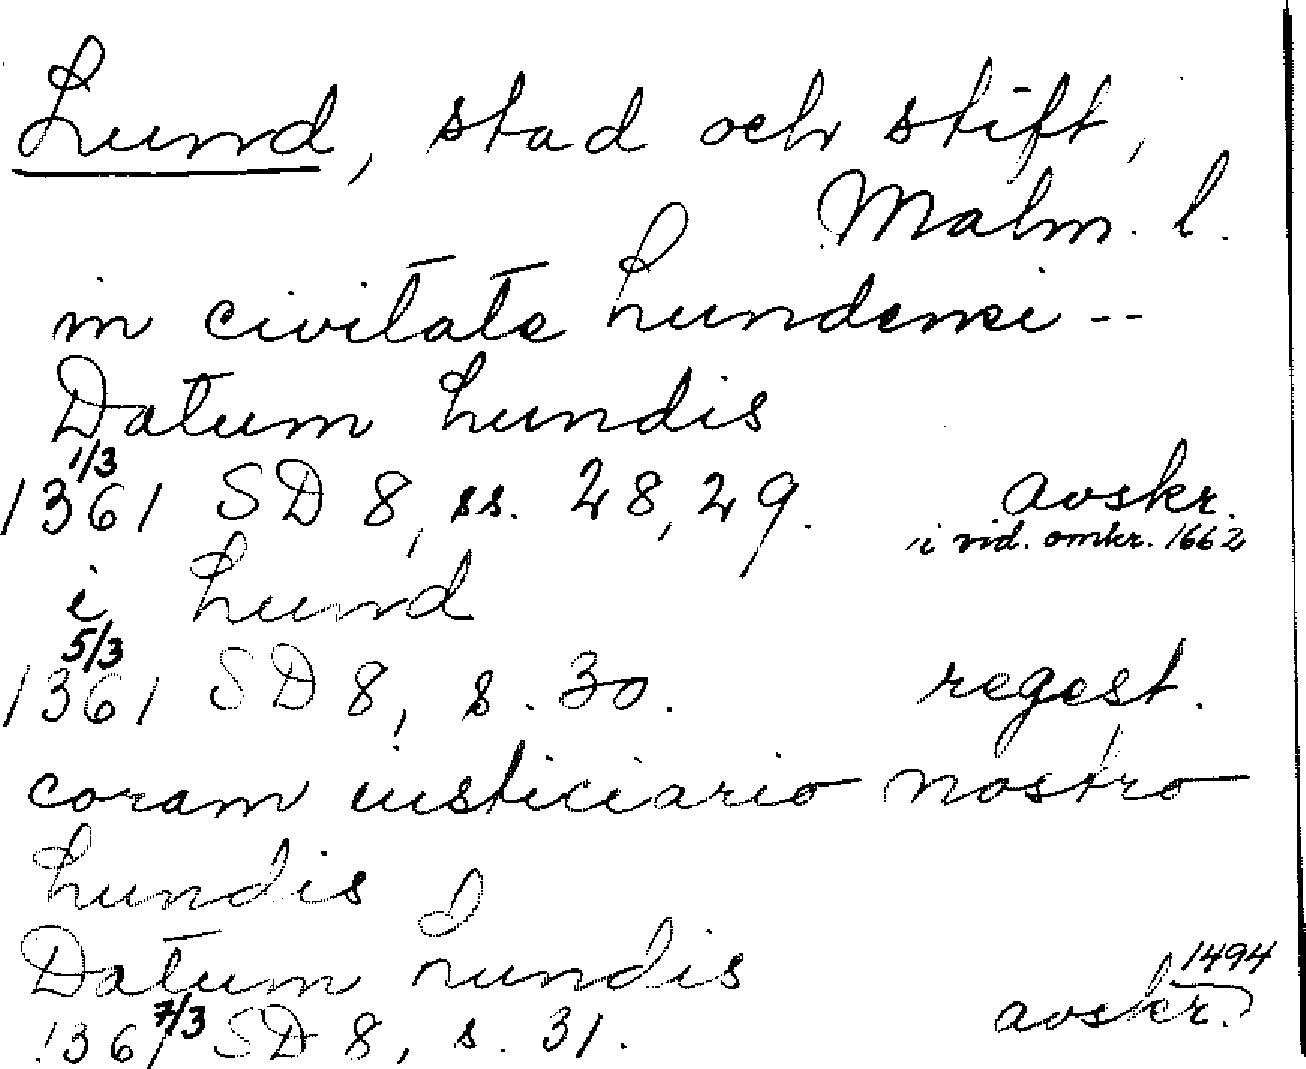 Lund, stad och stift,
Malm. l.
in civitate Lundensi --
Datum Lundis
1361 1/3 SD 8, ss. 28, 29. avskr.
i vid. omkr. 1662
i Lund
1361 5/3 SD 8, s. 30. regest.
coram iusticiario nostro
Lundis
Datum Lundis
1361 7/3 SD 8, s. 31. avskr. 1494